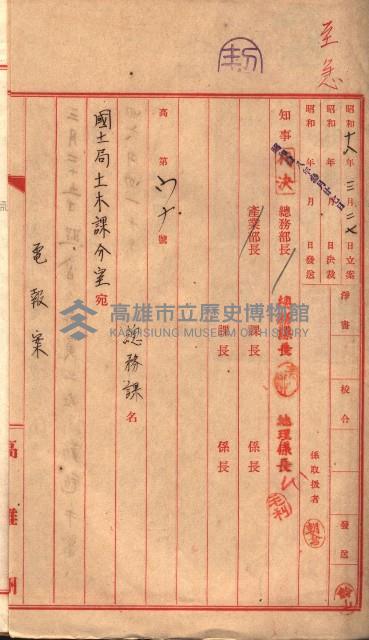 至急
昭和十八年三月二七日立案
昭和 年 月 日決裁
昭和 年 月 日發送
淨書
校合
發送
係取扱者
知事
代決
總務部長
總務課長
地理係長
毛利
產業部長
課長
係長
課長
係長
高第 號
總務課名
國土局土木課分室宛
電報案
高雄州
高雄市立歷史博物館
KAOHSIUNG MUSEUM OF HISTORY